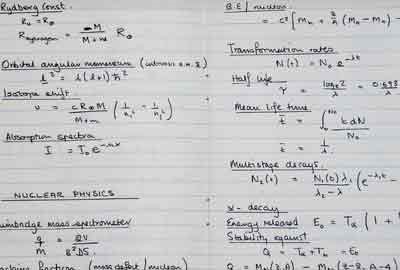 Rydberg Const.
R₀ = R∞
R_Hydrogen = M / (M + m) R∞
Orbital angular momentum
L² = l(l+1)ħ²
Isotope shift.
ν = cR∞M / (M+m) (1/n₁² - 1/n₂²)
Absorption spectra
I = I₀e
NUCLEAR PHYSICS
mass spectrometer
q/m = 2V / B²
fraction (mass defect / nucleon)
B.E / nucleon
= c² [Mn + (Mn - Mn) -
Transformation rates
N(t) = N₀ e^-λt
Half life
τ = loge2 / λ = 0.693
Mean life time
t̄ = ∫₀^N₀ t dN / N₀
t̄ = 1/λ
Multistage decays.
N₂(t) = N₁(0) λ₁ / (λ₂ - λ₁) (e^-λ₁t -
α - decay
Energy released E₀ = Tα (1 +
Stability against
Q = Tα + Tb = E₀
Q = (Z,A) - (Z-2, A-4)